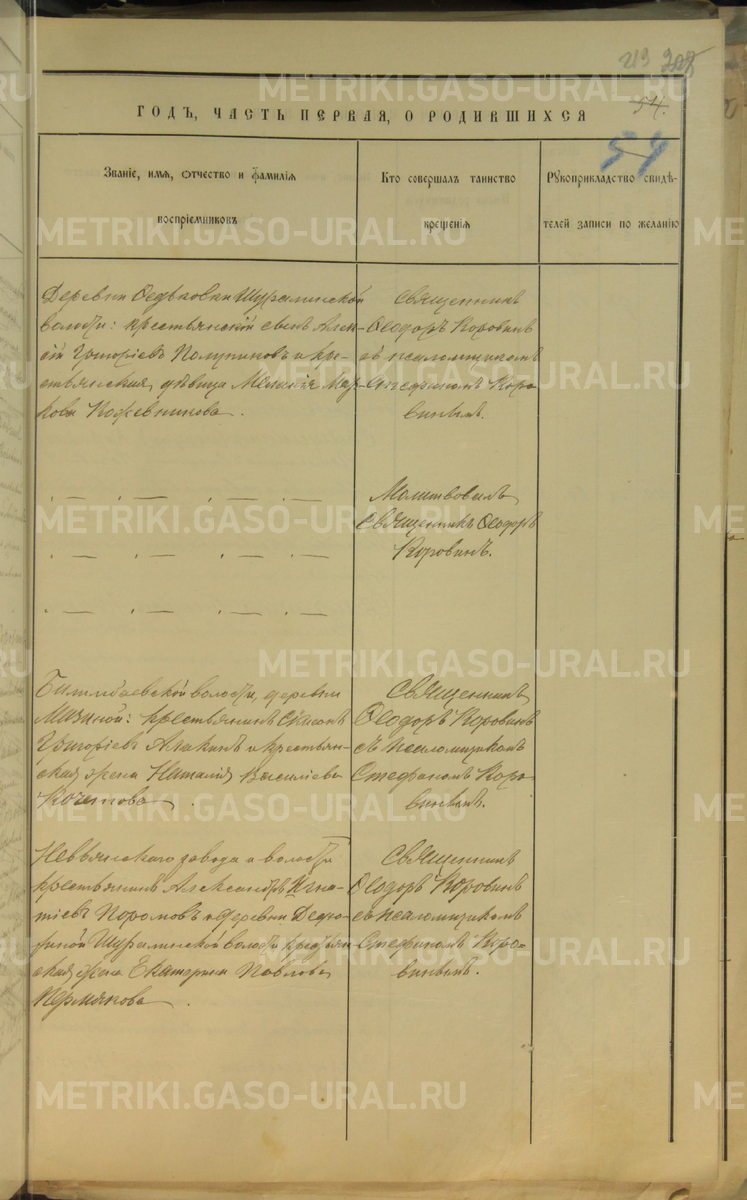 213
54.
54
ГОДЪ, ЧАСТЬ ПЕРВАЯ, О РОДИВШИХСЯ
Званіе, имя, ѿтчество и фамилія
воспріемниковъ
Кто совершалъ таинство
крещенія
Рукоприкладство свидѣ-
телей записи по желанію
METRIKI.GASO-URAL.RU
Деревни Ѳедьковки Шуралинской
волости: крестьянскій сынъ Алек-
сѣй Григоріевъ и кре-
стьянская дѣвица Мар-
кова Кожевникова.
Священникъ
Ѳеодоръ Коровинъ
съ псаломщикомъ
Стефаномъ Коро-
винымъ.
Молитвовалъ
Священникъ Ѳеодоръ
Коровинъ.
Билимбаевской волости, деревни
крестьянинъ Симеонъ
Григоріевъ и крестьян-
ская жена Наталія Василіева
Кочетова.
Священникъ
Ѳеодоръ Коровинъ
съ псаломщикомъ
Стефаномъ Коро-
винымъ.
Невьянскаго завода и волости
крестьянинъ Александръ Игна-
тіевъ и деревни
Шуралинской волости крестьян-
ская жена Екатерина Павлова
Пермякова.
Священникъ
Ѳеодоръ Коровинъ
съ псаломщикомъ
Стефаномъ Коро-
винымъ.